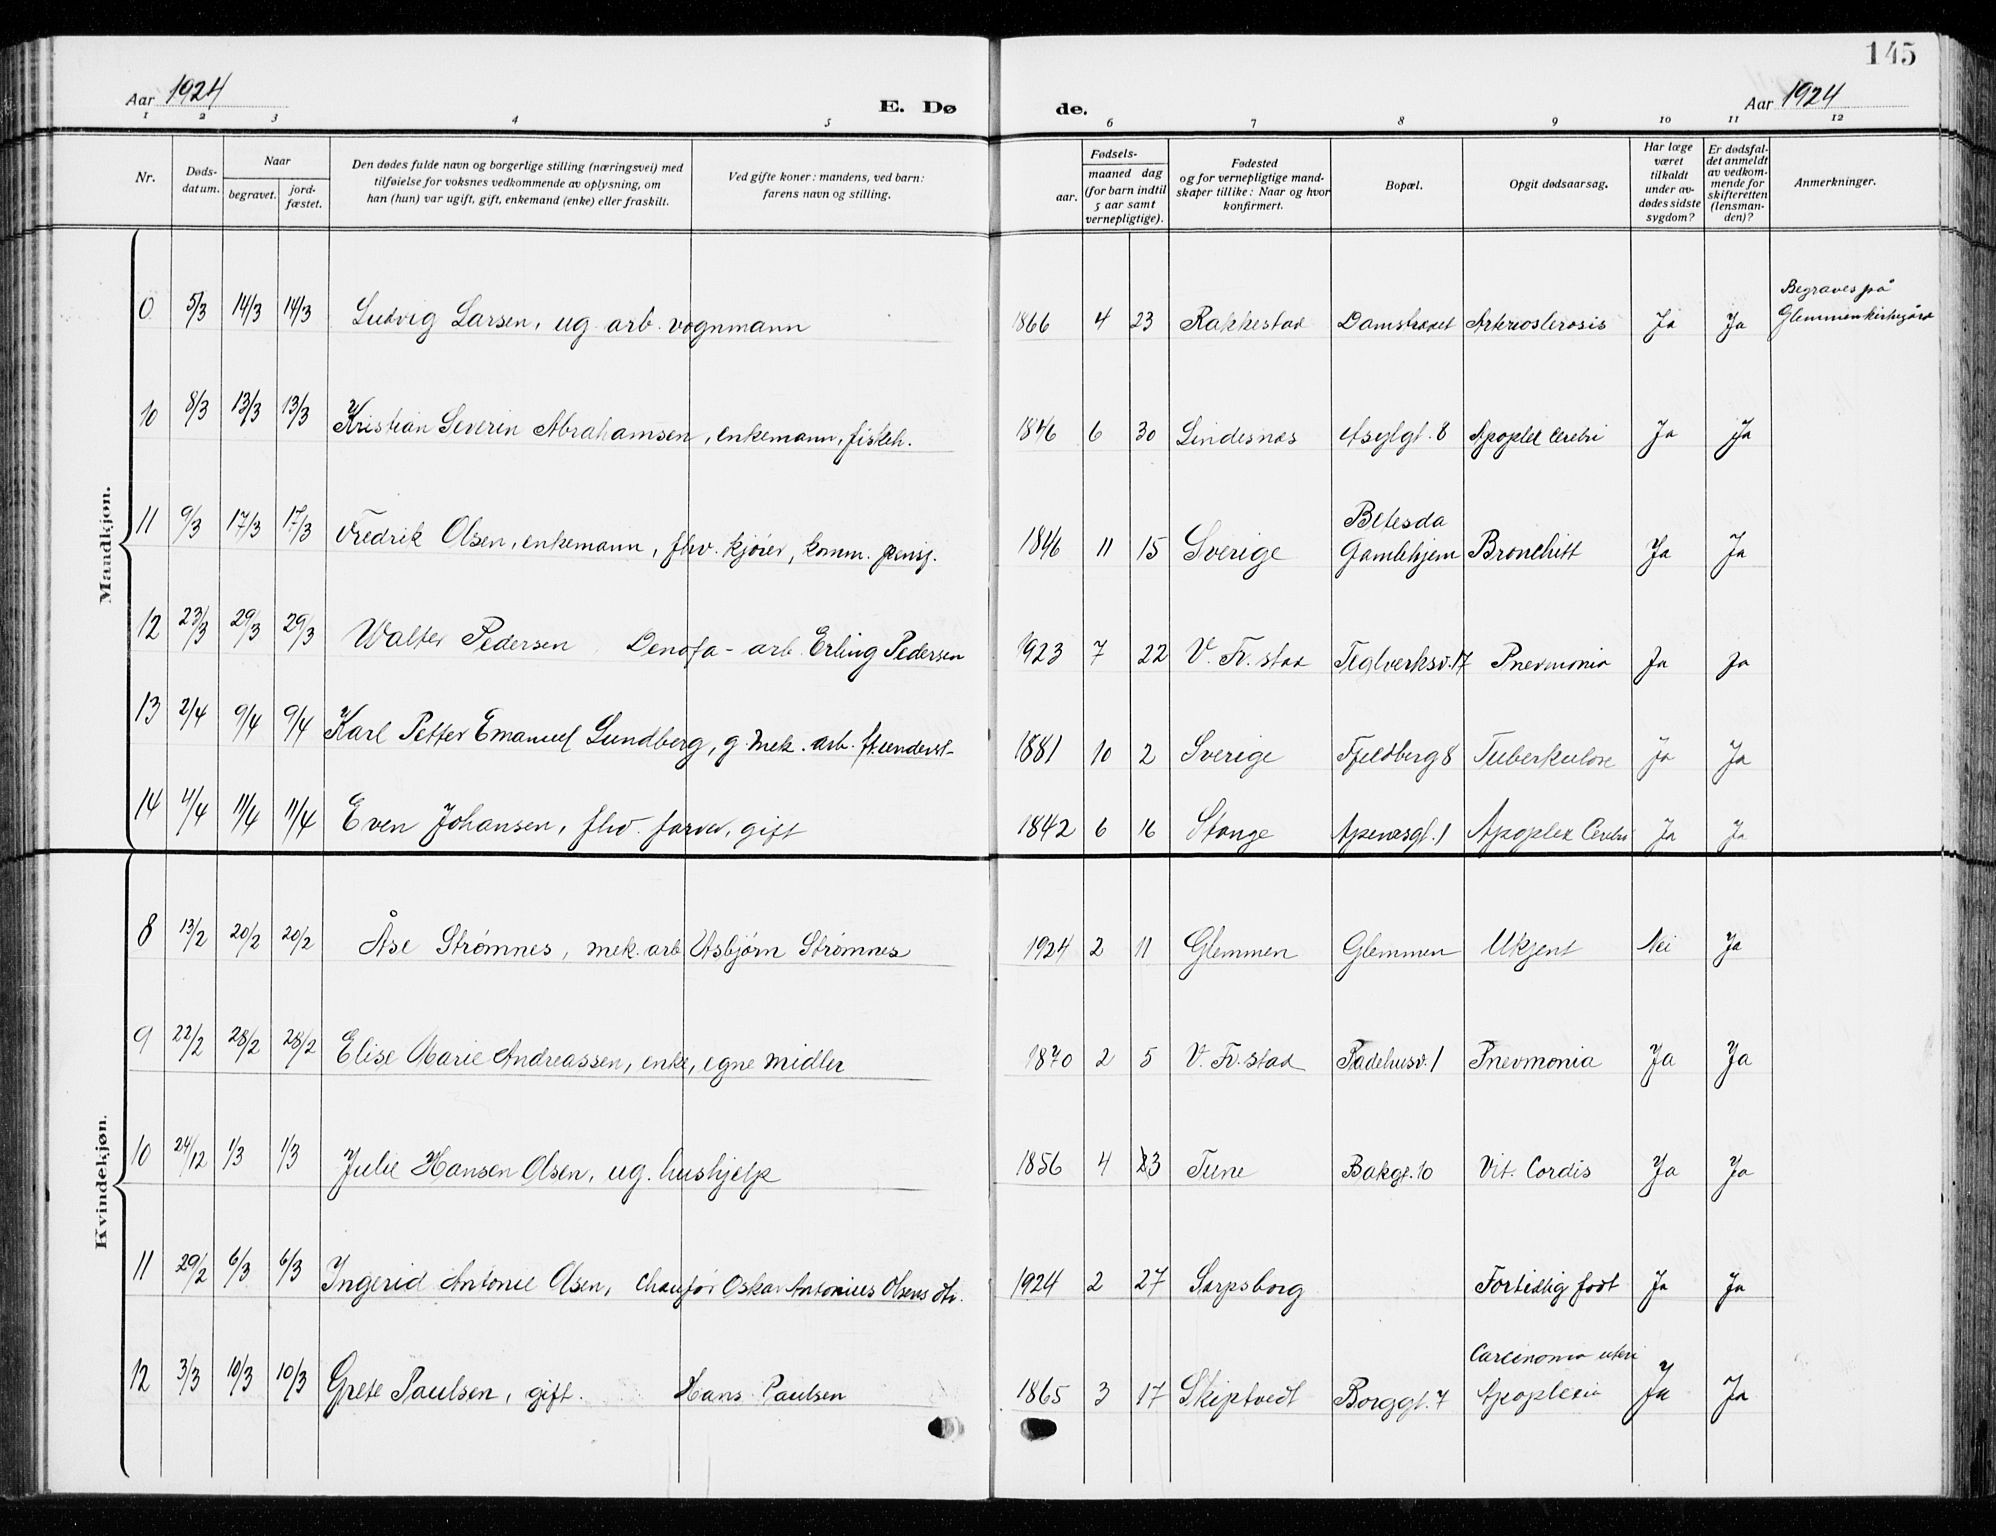 145
Aar 1924
E. Dø
de.
Aar 1924
1 2 3 4 5 6 7 8 9 10 11 12
Nr.
Døds-
datum.
Naar
begravet.
jord-
fæstet.
Den dødes fulde navn og borgerlige stilling (næringsvei) med
tilføielse for voksnes vedkommende av oplysning, om
han (hun) var ugift, gift, enkemand (enke) eller fraskilt.
Ved gifte koner: mandens, ved barn:
farens navn og stilling.
Fødsels-
aar.
maaned dag
(for barn indtil
5 aar samt
vernepligtige).
Fødested
og for vernepligtige mand-
skaper tillike: Naar og hvor
konfirmert.
Bopæl.
Opgit dødsaarsag.
Har læge
været
tilkaldt
under av-
dødes sidste
sygdom?
Er dødsfal-
det anmeldt
av vedkom-
mende for
skifteretten
(lensman-
den)?
Anmerkninger.
Mandkjøn.
0 5/3 14/3 14/3 Ludvig Larsen, ug. arb. vognmann 1866 4 23 Rakkestad Damstrædet Arterioslerosis Ja Ja Begraves på
Glemmen kirkegård
10 8/3 13/3 13/3 Kristian Severin Abrahamsen, enkemann, fiskeh. 1846 6 30 Lindesnæs Asylgt. 8 Apoplex Cerebri Ja Ja
11 9/3 17/3 17/3 Fredrik Olsen, enkemann, fhv. kjører, komm. pensj. 1846 11 15 Sverige Betesda
Gamlehjem Bronchitt Ja Ja
12 23/3 29/3 29/3 Walter Pedersen Denofa-arb. Erling Pedersen 1923 7 22 V. Fr. stad Teglverksv. 17 Pnevmonia Ja Ja
13 2/4 9/4 9/4 Karl Petter Emanuel Lundberg, g. mek. arb. f. underst- 1881 10 2 Sverige Fjeldberg 8 Tuberkulose Ja Ja
14 4/4 11/4 11/4 Even Johansen, fhv. farver, gift 1842 6 16 Stange Apenesgt. 1 Apoplex Cerebri Ja Ja
Kvindekjøn.
8 13/2 20/2 20/2 Åse Strømnes, mek. arb. Asbjørn Strømnes 1924 2 11 Glemmen Glemmen Ukjent Nei Ja
9 22/2 28/2 28/2 Elise Marie Andreassen, enke, egne midler 1870 2 5 V. Fr. stad Padehusv. 1 Pnevmonia Ja Ja
10 24/12 1/3 1/3 Julie Hansen Olsen, ug. hushjelp 1856 4 23 Tune Bakgt. 10 Vit. Cordis Ja Ja
11 29/2 6/3 6/3 Ingerid Antonie Olsen, Chaufør Oskar Antonius Olsens dtr. 1924 2 27 Sarpsborg Fortidlig født Ja Ja
12 3/3 10/3 10/3 Grete Paulsen, gift. Hans Paulsen 1865 3 17 Skiptvedt Borggt. 7 Carcinoma uteri
Apoplexia Ja Ja